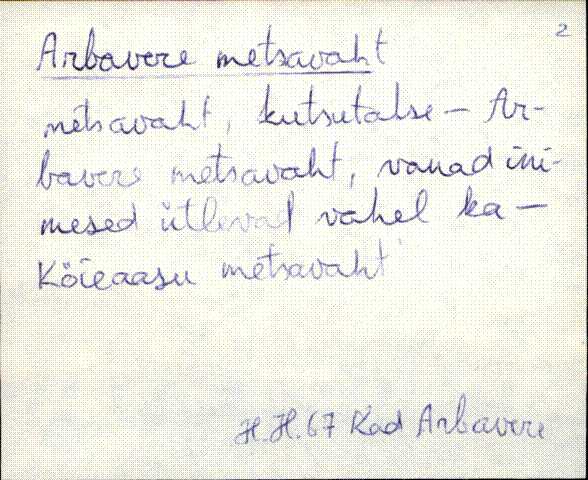 2
Arbavere metsavaht
metsavaht, kutsutakse – Ar-
bavere metsavaht, vanad ini-
mesed ütlevad vahel ka –
Köieaasu metsavaht
H.H.67 Kad Arbavere